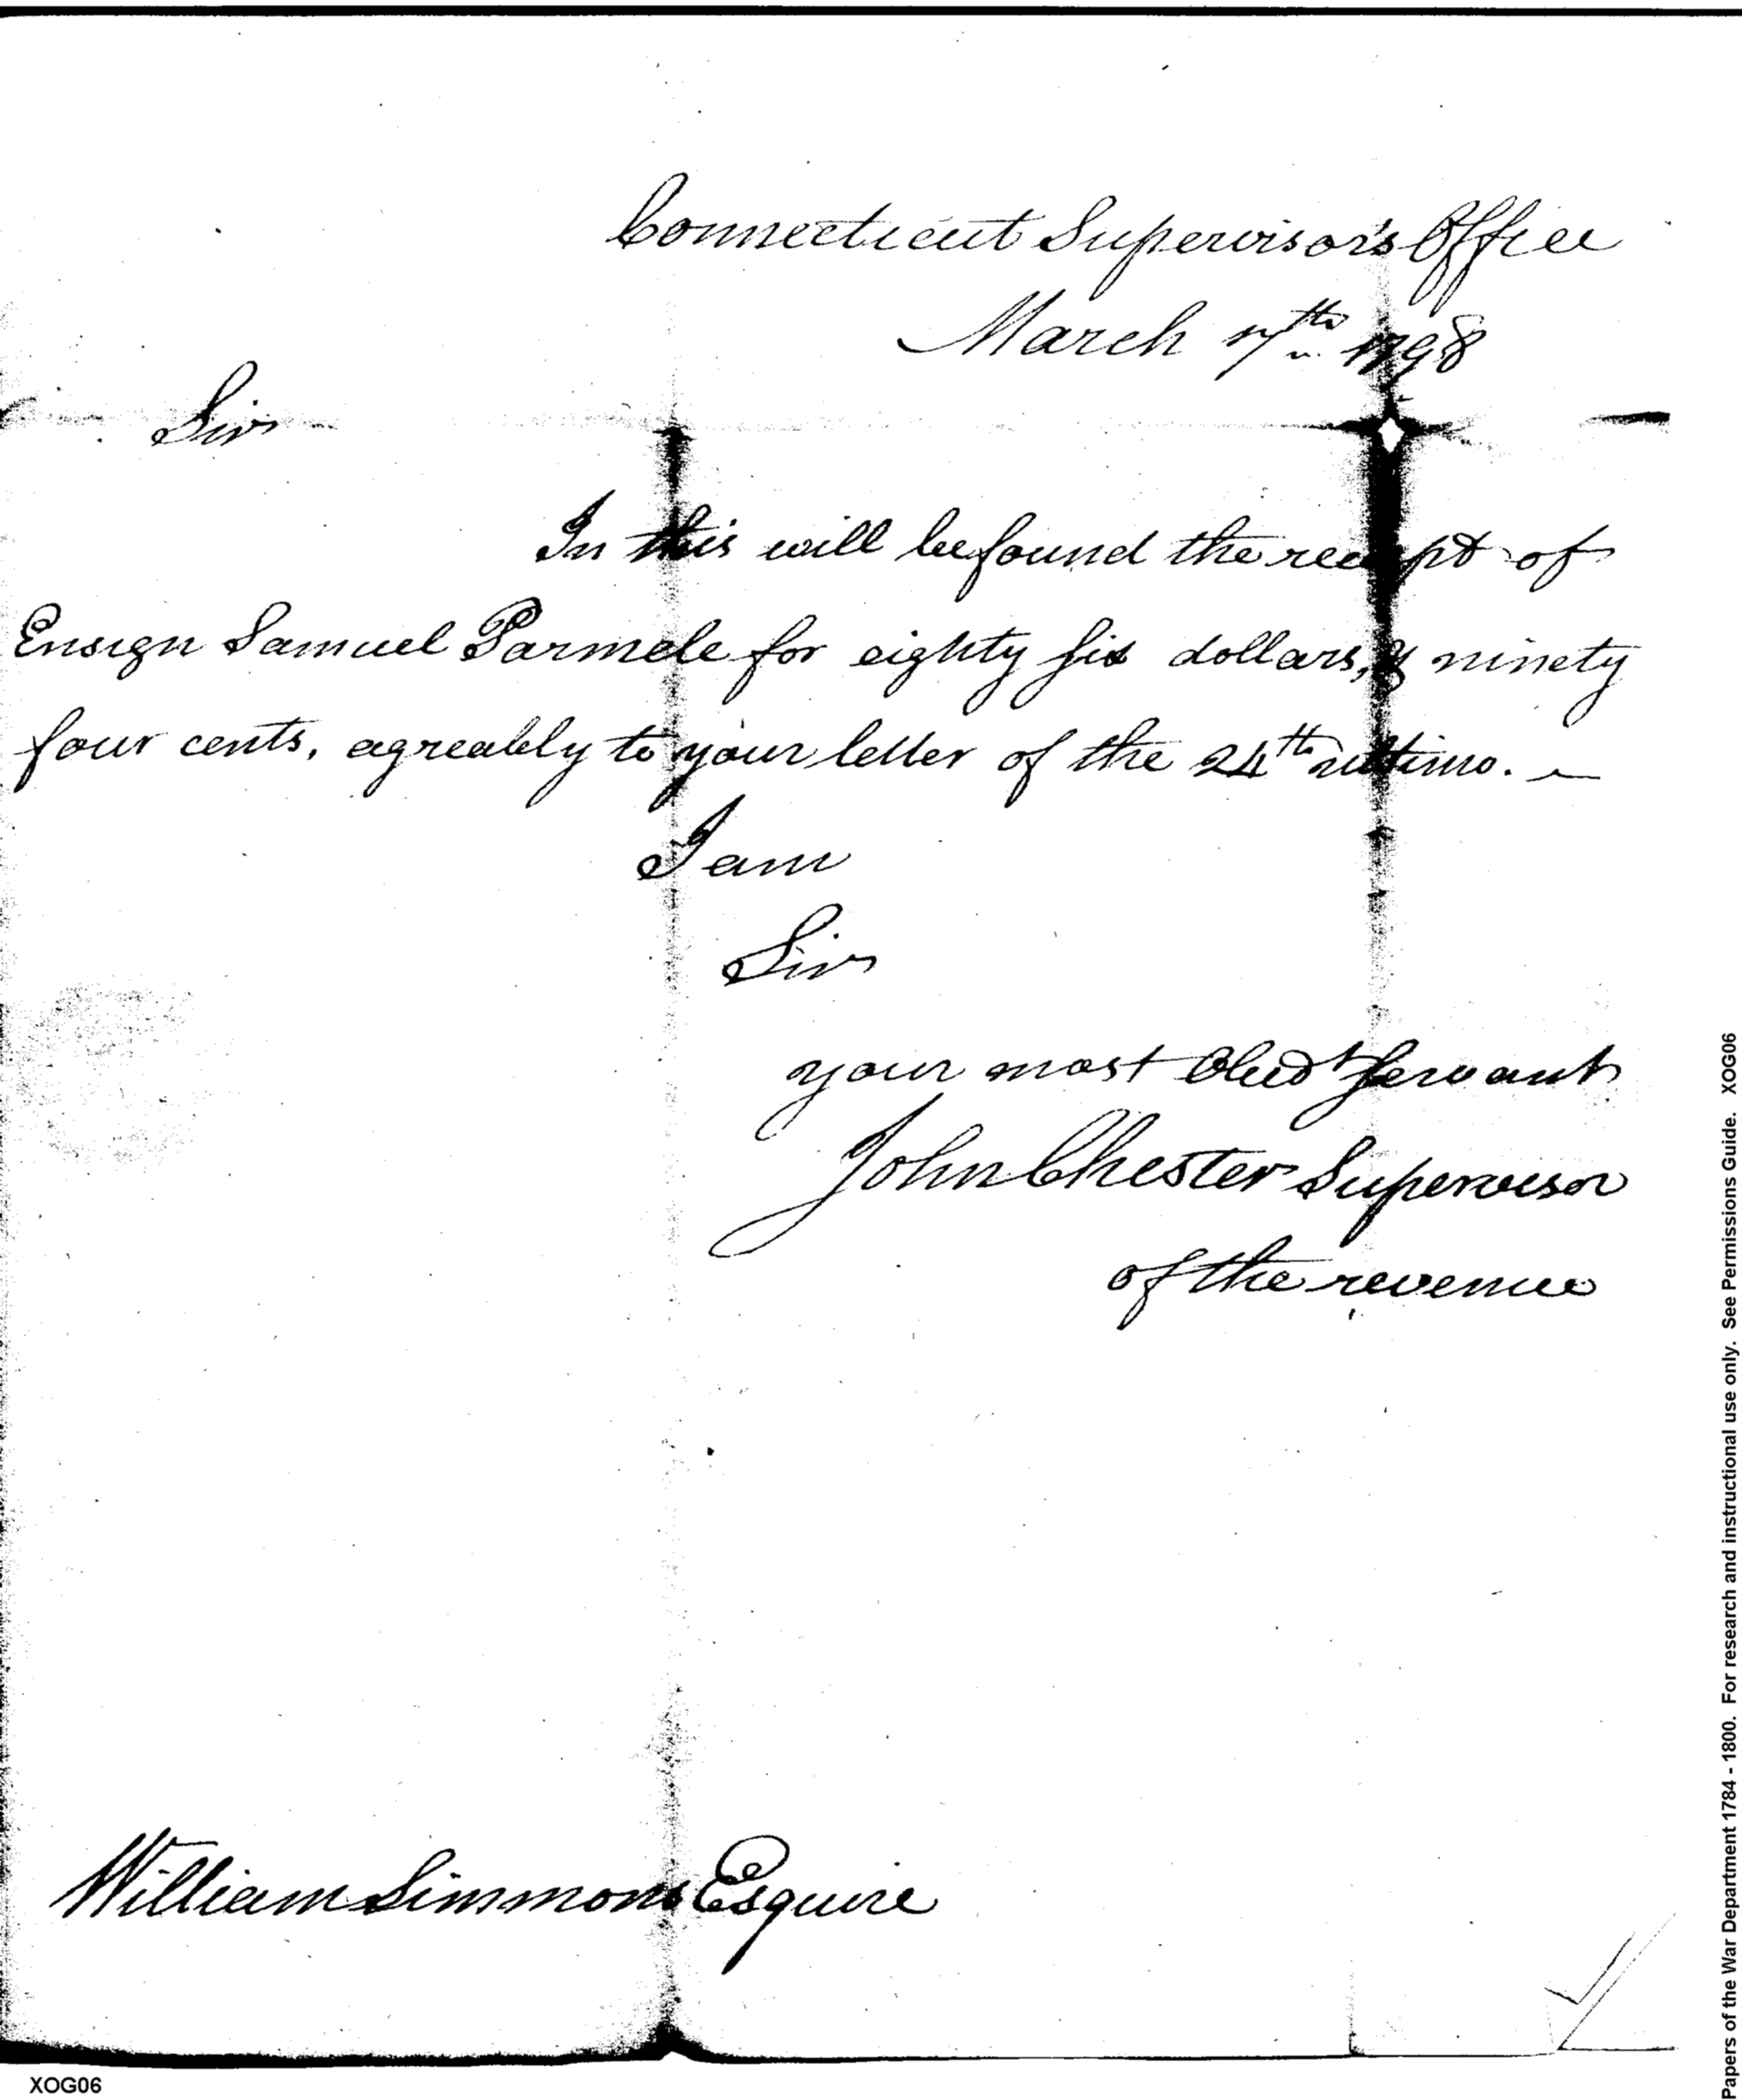 Connecticut Supervisor's Office
March 7th 1798
Sir
In this will be found the receipt of
Ensign Samuel Parmele for eighty six dollars, & ninety
four cents, agreably to your letter of the 24th ultimo. ~
I am
Sir
your most Obedt servant
John Chester Supervisor
of the revenue
William Simmons Esquire
XOG06
Papers of the War Department 1784 - 1800. For research and instructional use only. See Permissions Guide. XOG06